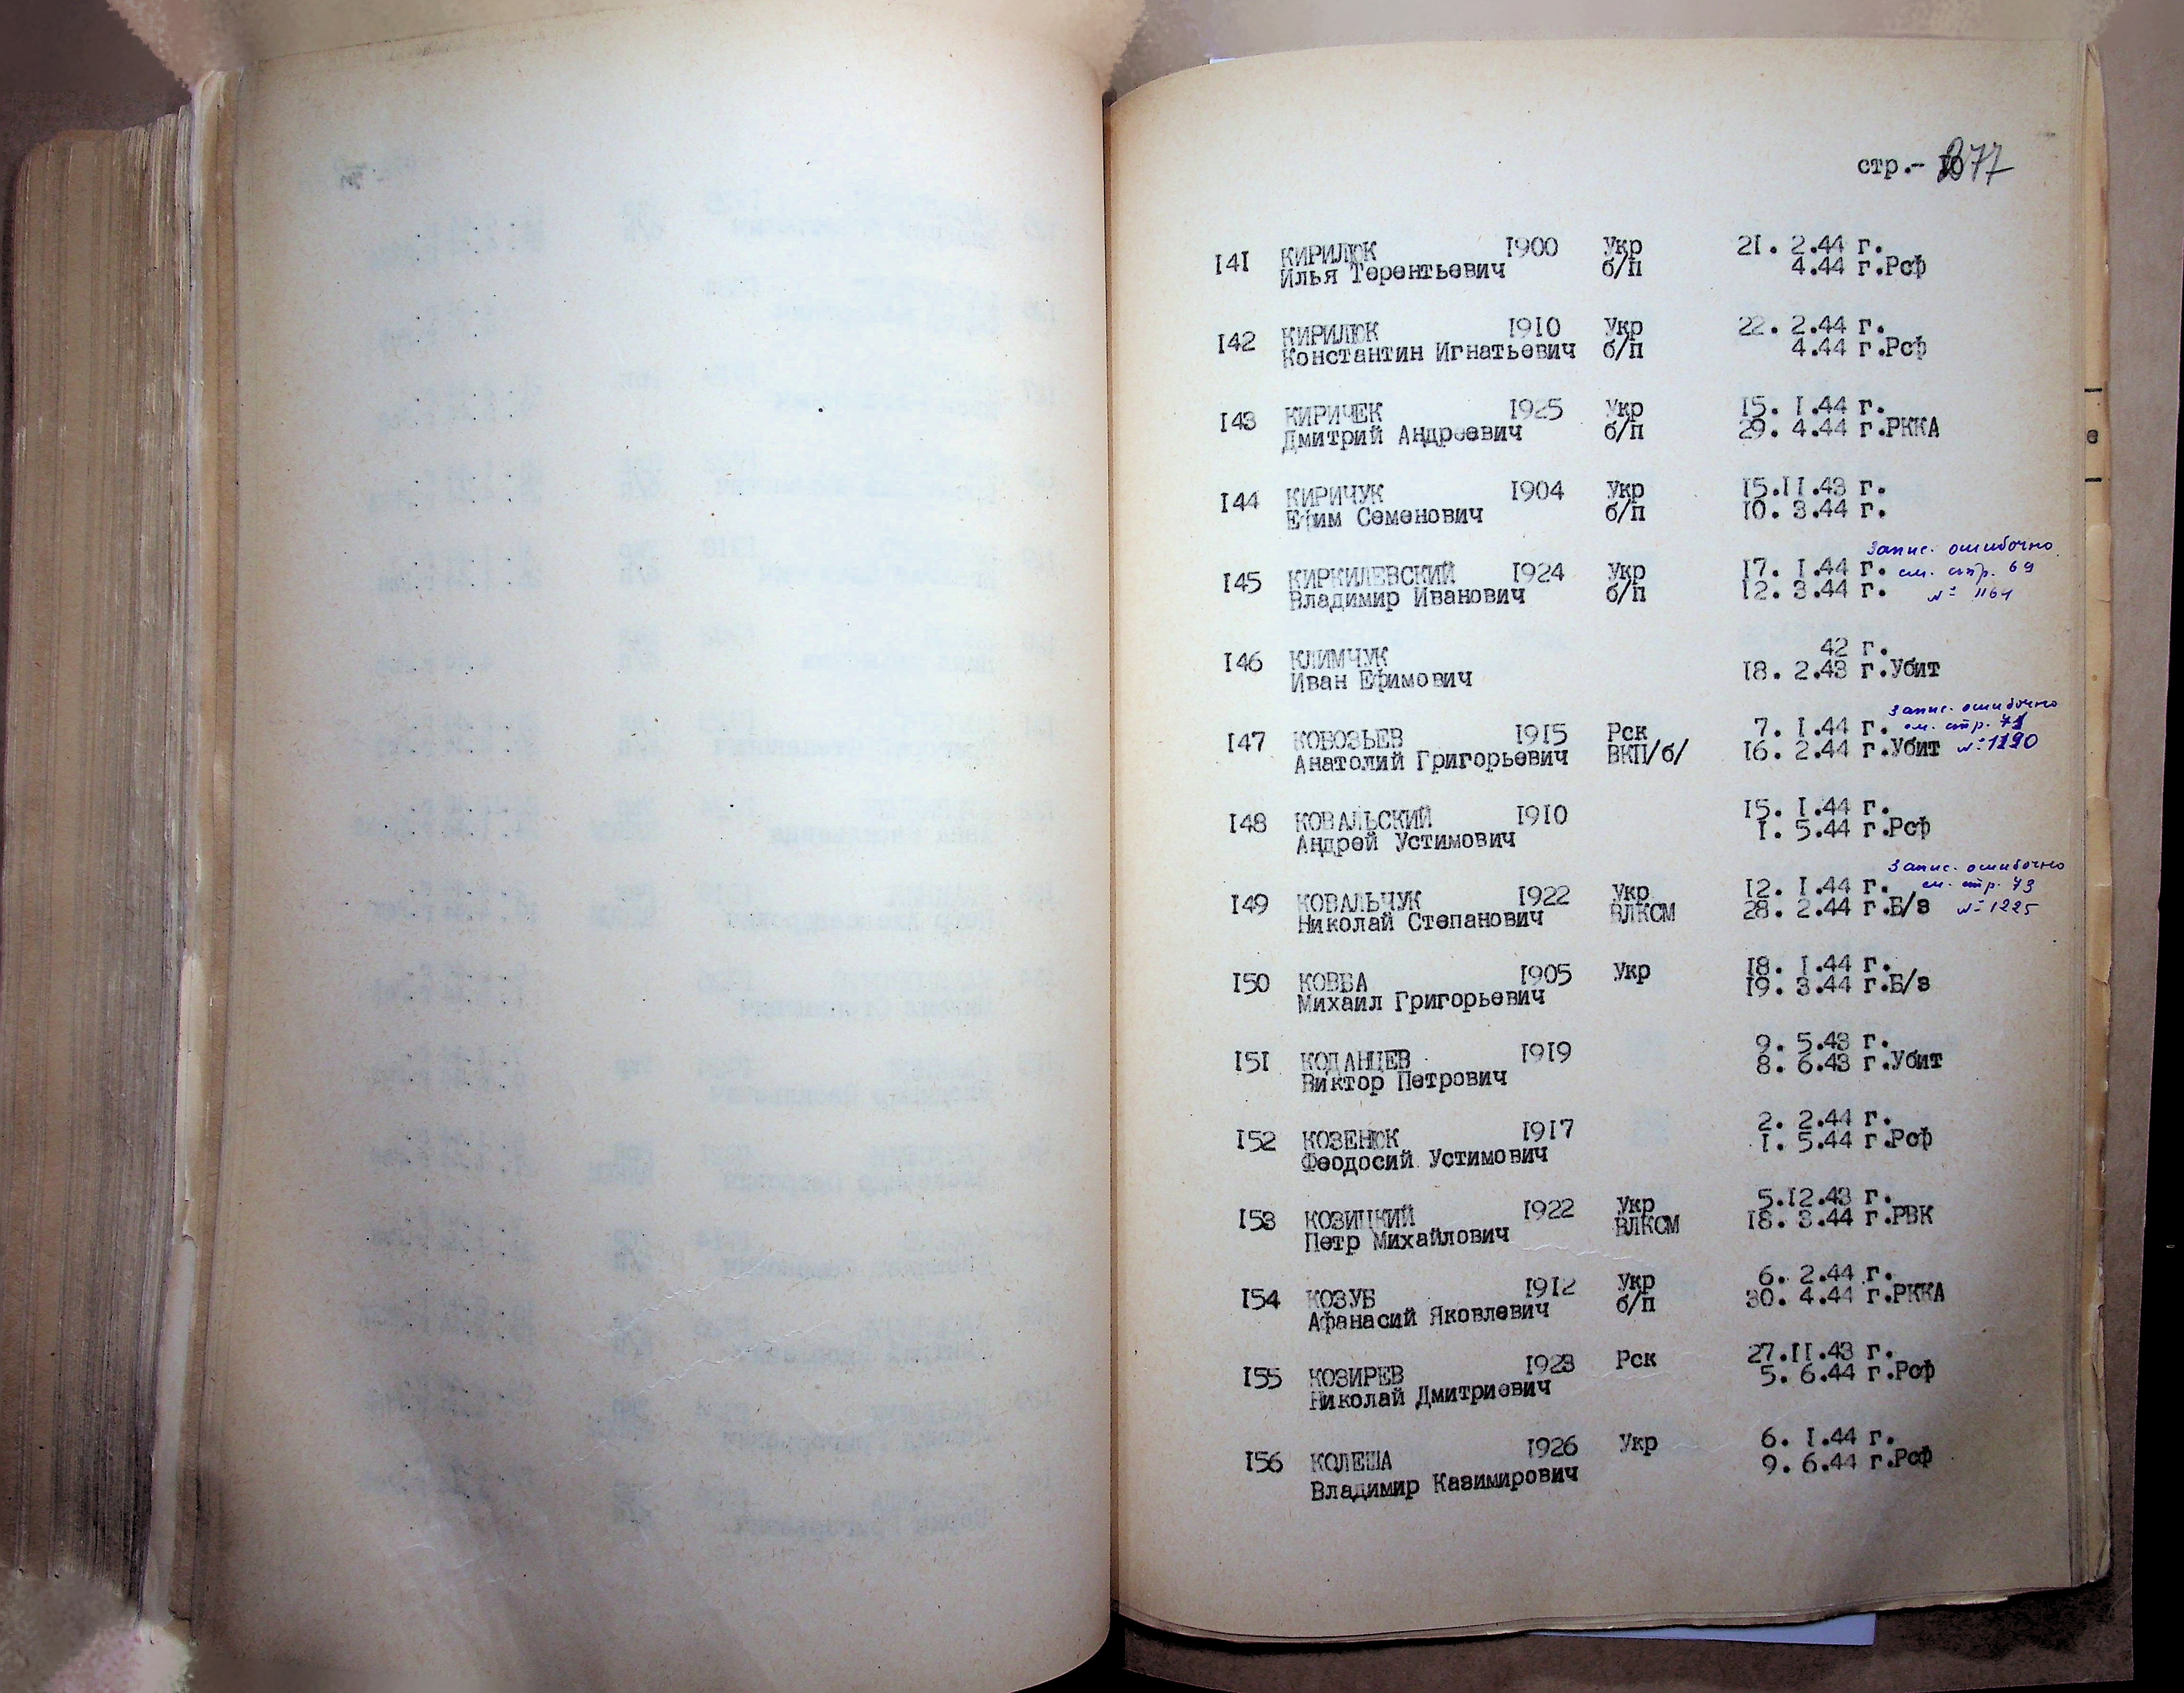 стр.- 377
141 КИРИЛЮК 1900 Укр 21. 2.44 г.
Илья Терентьевич б/п 4.44 г.Рсф
142 КИРИЛЮК 1910 Укр 22. 2.44 г.
Константин Игнатьевич б/п 4.44 г.Рсф
143 КИРИЧЕК 1925 Укр 15. 1.44 г.
Дмитрий Андреевич б/п 29. 4.44 г.РККА
144 КИРИЧУК 1904 Укр 15.11.43 г.
Ефим Семенович б/п 10. 3.44 г.
Запис. ошибочно
145 КИРКИЛЕВСКИЙ 1924 Укр 17. 1.44 г. см. стр. 69
Владимир Иванович б/п 12. 3.44 г. № 1164
146 КЛИМЧУК 42 г.
Иван Ефимович 18. 2.43 г.Убит
Запис. ошибочно
147 КОБОЗЬЕВ 1915 Рск 7. 1.44 г. см. стр. 71
Анатолий Григорьевич ВКП/б/ 16. 2.44 г.Убит № 1190
148 КОВАЛЬСКИЙ 1910 15. 1.44 г.
Андрей Устимович 1. 5.44 г.Рсф
Запис. ошибочно
149 КОВАЛЬЧУК 1922 Укр 12. 1.44 г. см. стр. 73
Николай Степанович ВЛКСМ 28. 2.44 г.Б/з № 1225
150 КОВБА 1905 Укр 18. 1.44 г.
Михаил Григорьевич 19. 3.44 г.Б/з
151 КОДАНЦЕВ 1919 9. 5.43 г.
Виктор Петрович 8. 6.43 г.Убит
152 КОЗЕНЮК 1917 2. 2.44 г.
Феодосий Устимович 1. 5.44 г.Рсф
153 КОЗИЦКИЙ 1922 Укр 5.12.43 г.
Петр Михайлович ВЛКСМ 18. 3.44 г.РВК
154 КОЗУБ 1912 Укр 6. 2.44 г.
Афанасий Яковлевич б/п 30. 4.44 г.РККА
155 КОЗИРЕВ 1923 Рск 27.11.43 г.
Николай Дмитриевич 5. 6.44 г.Рсф
156 КОЛЕША 1926 Укр 6. 1.44 г.
Владимир Казимирович 9. 6.44 г.Рсф